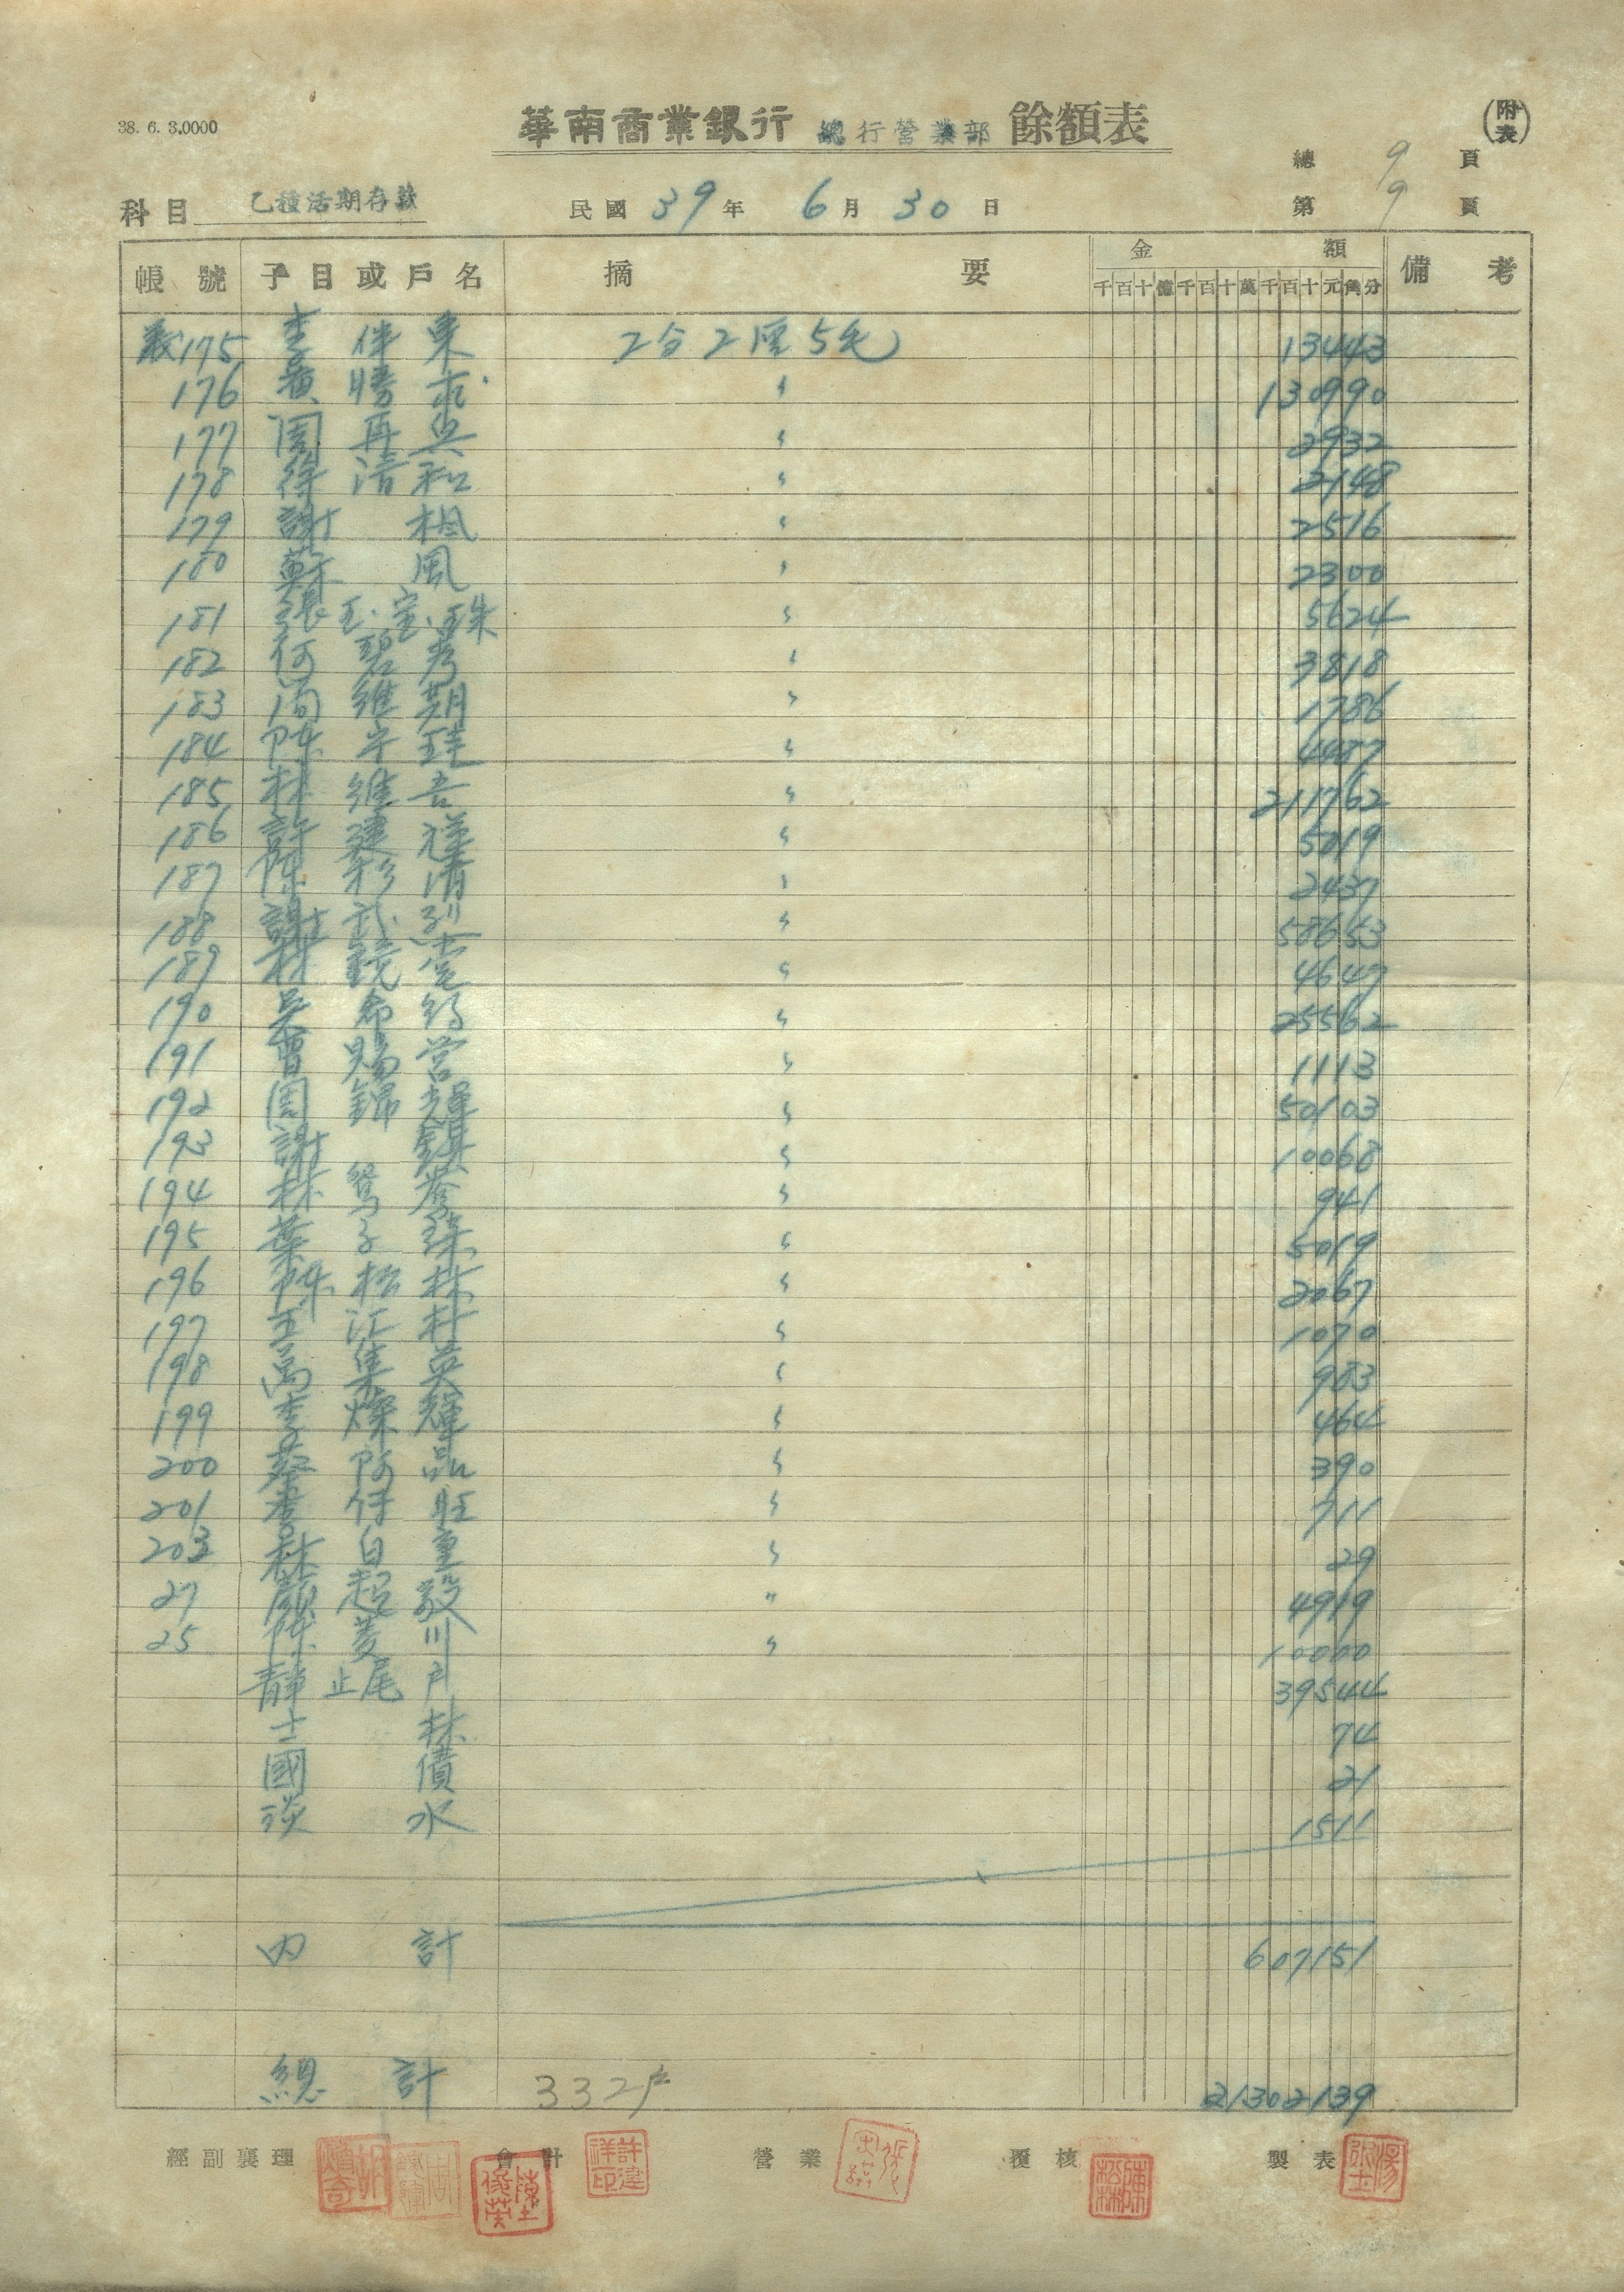 38. 6. 3.0000
華南商業銀行 總行營業部 餘額表
(附表)
總 9 頁
科目 乙種活期存款 民國 39 年 6 月 30 日 第 9 頁
帳號 子目或戶名 摘要 金額 備考
千百十億千百十萬千百十元角分
175 李 東 2分2厘5毛 13443
176 黃勝 〃 130990
177 周再興 〃 2932
178 徐清和 〃 2148
179 謝楓 〃 2516
180 蘇風 〃 2300
181 張王宝珠 〃 5624
182 何碧 〃 3818
183 維期 〃 1786
184 陳 〃 4487
185 林維吾 〃 211762
186 許建祥 〃 5019
187 陳杉清 〃 2437
188 謝武烈 〃 58653
189 林鏡雲 〃 4647
190 吳 〃 25562
191 曹賜營 〃 1113
192 周錦輝 〃 50103
193 謝錤 〃 10068
194 林 〃 941
195 葉子珠 〃 5019
196 陳松林 〃 2067
197 王江村 〃 1070
198 萬集英 〃 983
199 李燦輝 〃 464
200 蔡阿品 〃 390
201 李仔旺 〃 711
203 林白重 〃 29
27 顏起毅 〃 4919
25 陳菱川 〃 10000
靜止尾戶 39544
士林 74
國債 21
淡水 1511
內計 607151
總計 332戶 21302139
經副襄理 會計 營業 覆核 製表
許建祥印
陳松林